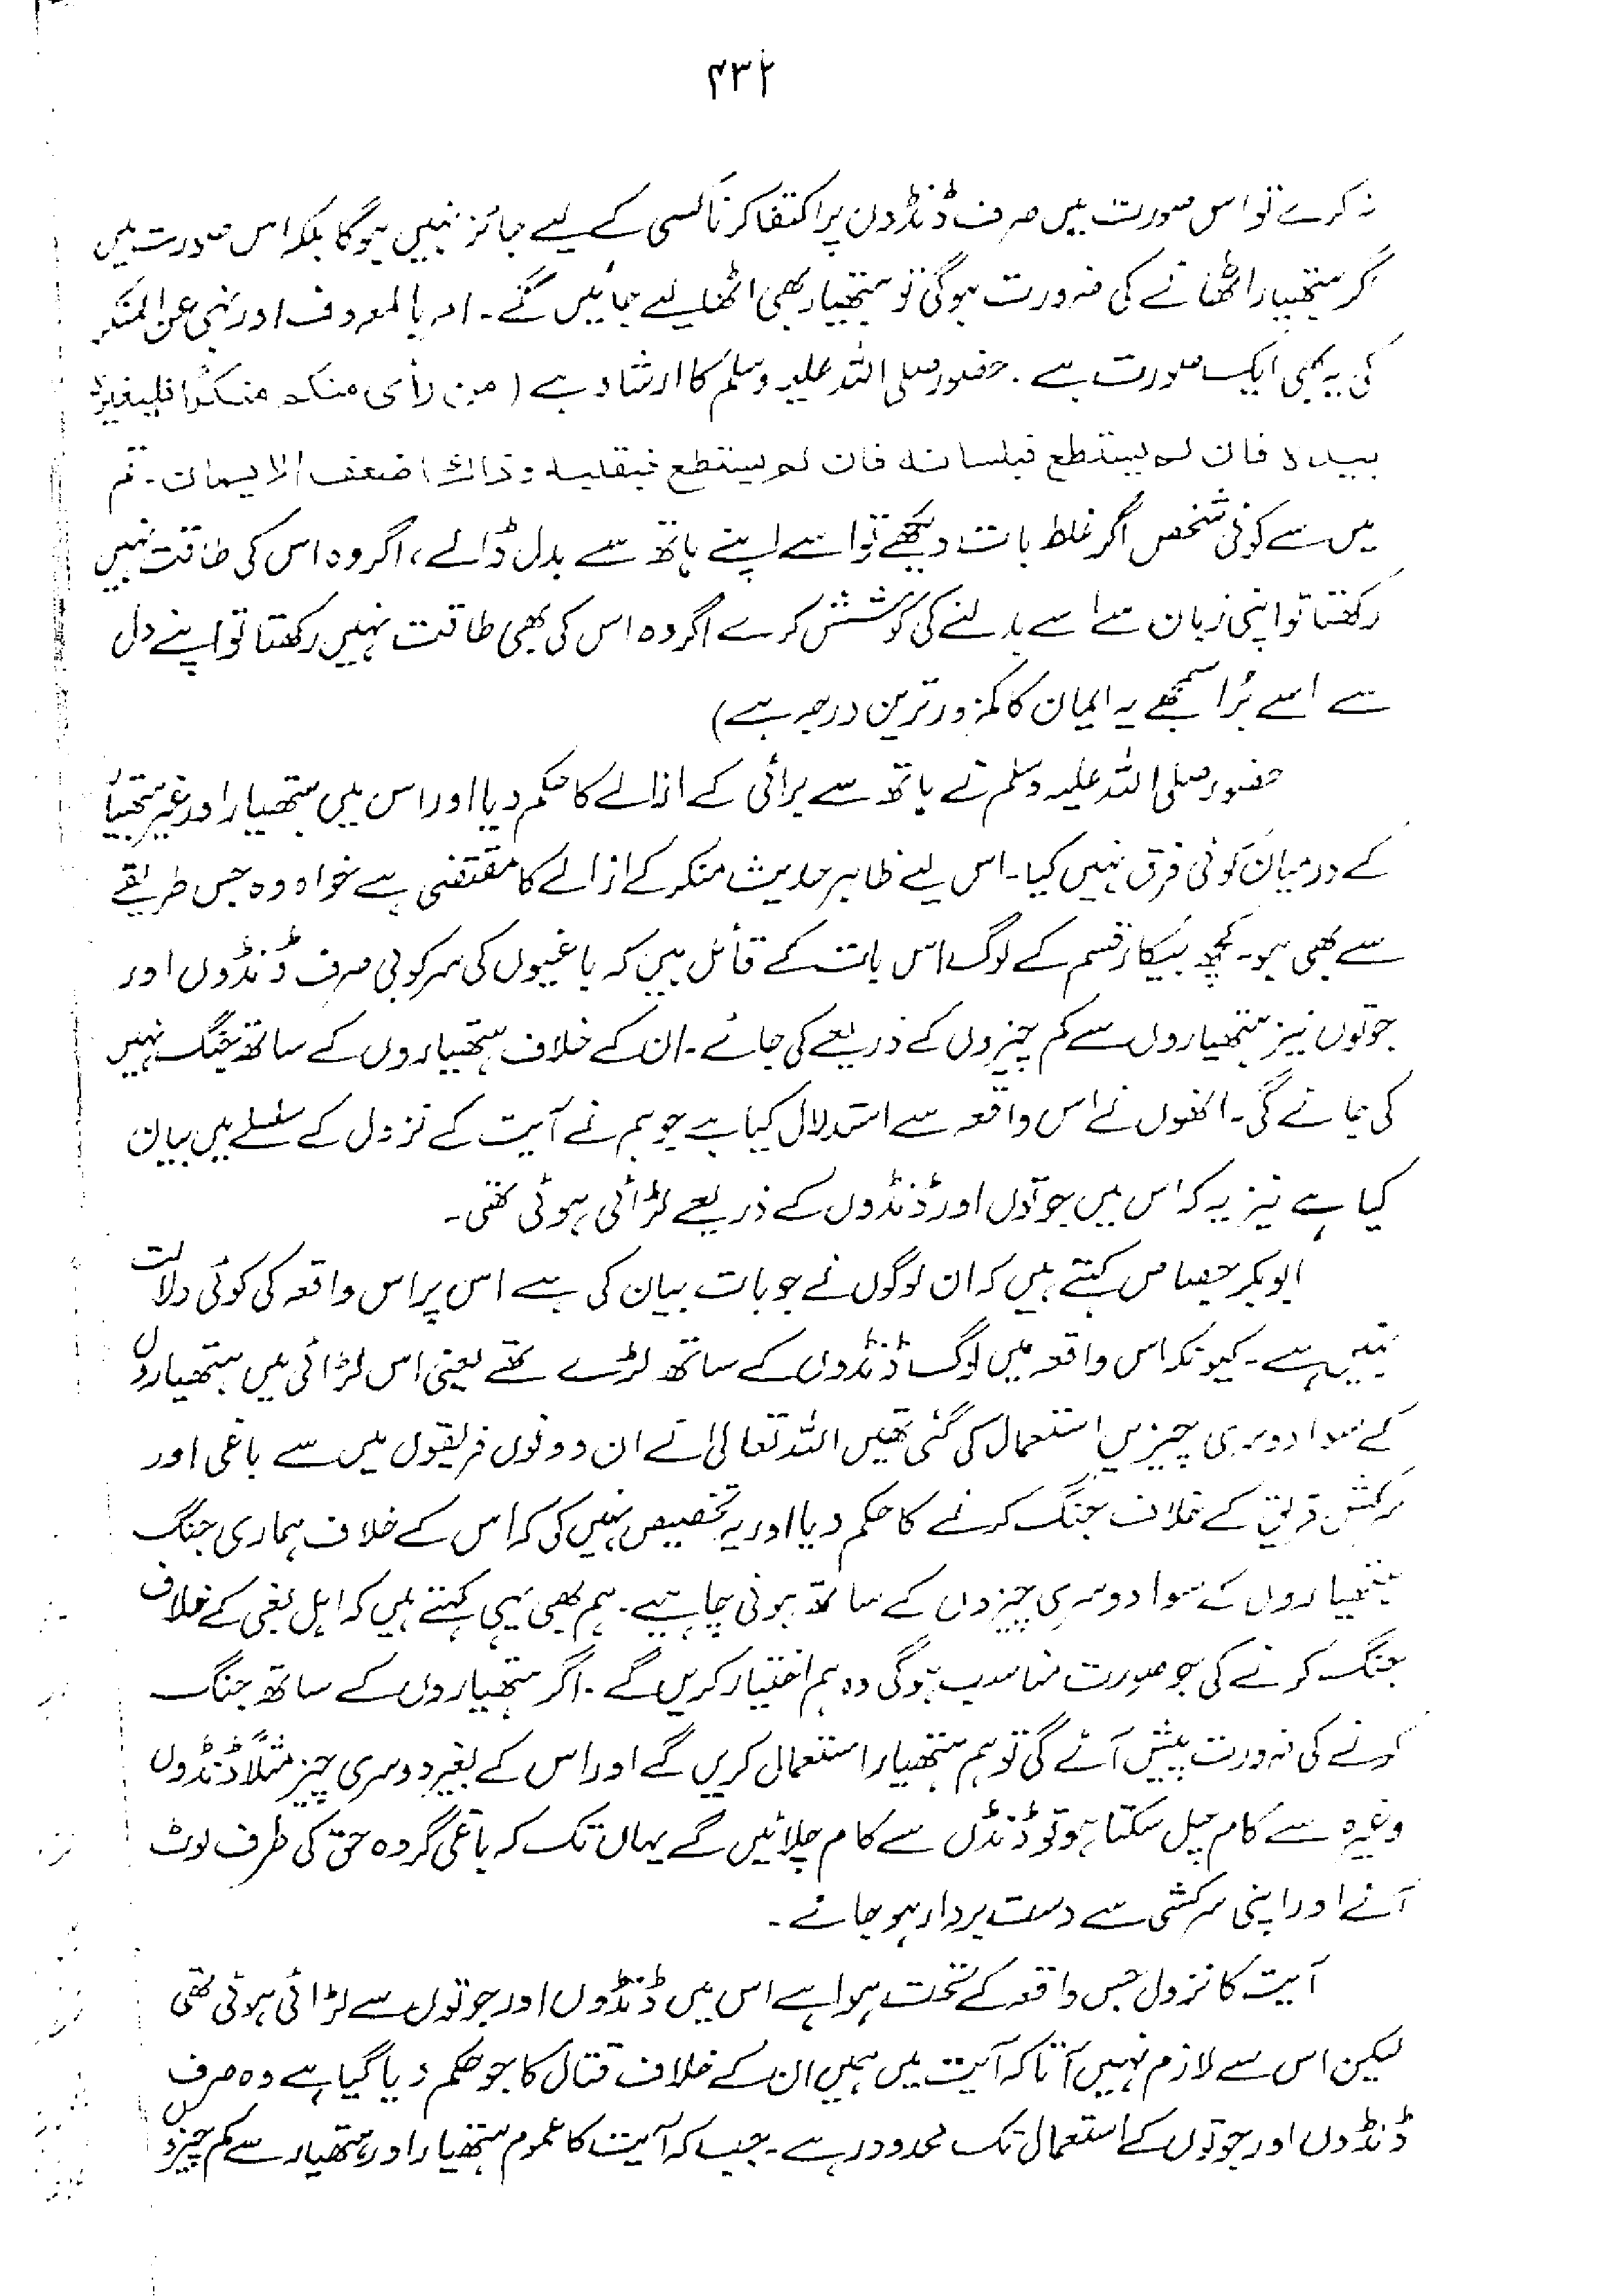 ۴۳۲
نہ کرے تو اس صورت میں صرف ڈنڈوں پر اکتفا کرنا کسی کے لیے جائز نہیں ہوگا بلکہ اس صورت میں
گر ہتھیار اٹھانے کی ضرورت ہوگی تو ہتھیار بھی اٹھا لیے جائیں گے۔ امر بالمعروف اور نہی عن المنکر
کی یہ بھی ایک صورت ہے۔ حضور صلی اللہ علیہ وسلم کا ارشاد ہے (من رأى منكم منكرًا فليغيره
بيده فان لم يستطع فبلسانه فان لم يستطع فبقلبه وذالك اضعف الايمان۔ تم
میں سے کوئی شخص اگر غلط بات دیکھے تو اسے اپنے ہاتھ سے بدل ڈالے، اگر وہ اس کی طاقت نہیں
رکھتا تو اپنی زبان سے اسے بدلنے کی کوشش کرے اگر وہ اس کی بھی طاقت نہیں رکھتا تو اپنے دل
سے اسے بُرا سمجھے یہ ایمان کا کمزور ترین درجہ ہے)
حضور صلی اللہ علیہ وسلم نے ہاتھ سے برائی کے ازالے کا حکم دیا اور اس میں ہتھیار اور غیر ہتھیار
کے درمیان کوئی فرق نہیں کیا۔ اس لیے ظاہر حدیث منکر کے ازالے کا مقتضی ہے خواہ وہ جس طریقے
سے بھی ہو۔ کچھ بیکار قسم کے لوگ اس بات کے قائل ہیں کہ باغیوں کی سرکوبی صرف ڈنڈوں اور
جوتوں نیز ہتھیاروں سے کم چیزوں کے ذریعے کی جائے۔ ان کے خلاف ہتھیاروں کے ساتھ جنگ نہیں
کی جائے گی۔ انھوں نے اس واقعہ سے استدلال کیا ہے جو ہم نے آیت کے نزول کے سلسلے میں بیان
کیا ہے نیز یہ کہ اس میں جوتوں اور ڈنڈوں کے ذریعے لڑائی ہوئی تھی۔
ابوبکر جصاص کہتے ہیں کہ ان لوگوں نے جو بات بیان کی ہے اس پر اس واقعہ کی کوئی دلالت
نہیں ہے۔ کیونکہ اس واقعہ میں لوگ ڈنڈوں کے ساتھ لڑے تھے یعنی اس لڑائی میں ہتھیاروں
کے سوا دوسری چیزیں استعمال کی گئی تھیں اللہ تعالیٰ نے ان دونوں فریقوں میں سے باغی اور
سرکش فریق کے خلاف جنگ کرنے کا حکم دیا اور یہ تخصیص نہیں کی کہ اس کے خلاف ہماری جنگ
ہتھیاروں کے سوا دوسری چیزوں کے ساتھ ہونی چاہیے۔ ہم بھی یہی کہتے ہیں کہ اہل بغی کے خلاف
جنگ کرنے کی جو صورت مناسب ہوگی وہ ہم اختیار کریں گے۔ اگر ہتھیاروں کے ساتھ جنگ
کرنے کی ضرورت پیش آئے گی تو ہم ہتھیار استعمال کریں گے اور اس کے بغیر دوسری چیز مثلاً ڈنڈوں
وغیرہ سے کام چل سکتا ہو تو ڈنڈں سے کام چلائیں گے یہاں تک کہ باغی گروہ حق کی طرف لوٹ
آئے اور اپنی سرکشی سے دست بردار ہو جائے۔
آیت کا نزول جس واقعہ کے تحت ہوا ہے اس میں ڈنڈوں اور جوتوں سے لڑائی ہوئی تھی
لیکن اس سے لازم نہیں آتا کہ آیت میں ہمیں ان کے خلاف قتال کا جو حکم دیا گیا ہے وہ صرف
ڈنڈوں اور جوتوں کے استعمال تک محدود رہے۔ جب کہ آیت کا عموم ہتھیار اور ہتھیار سے کم چیزوں